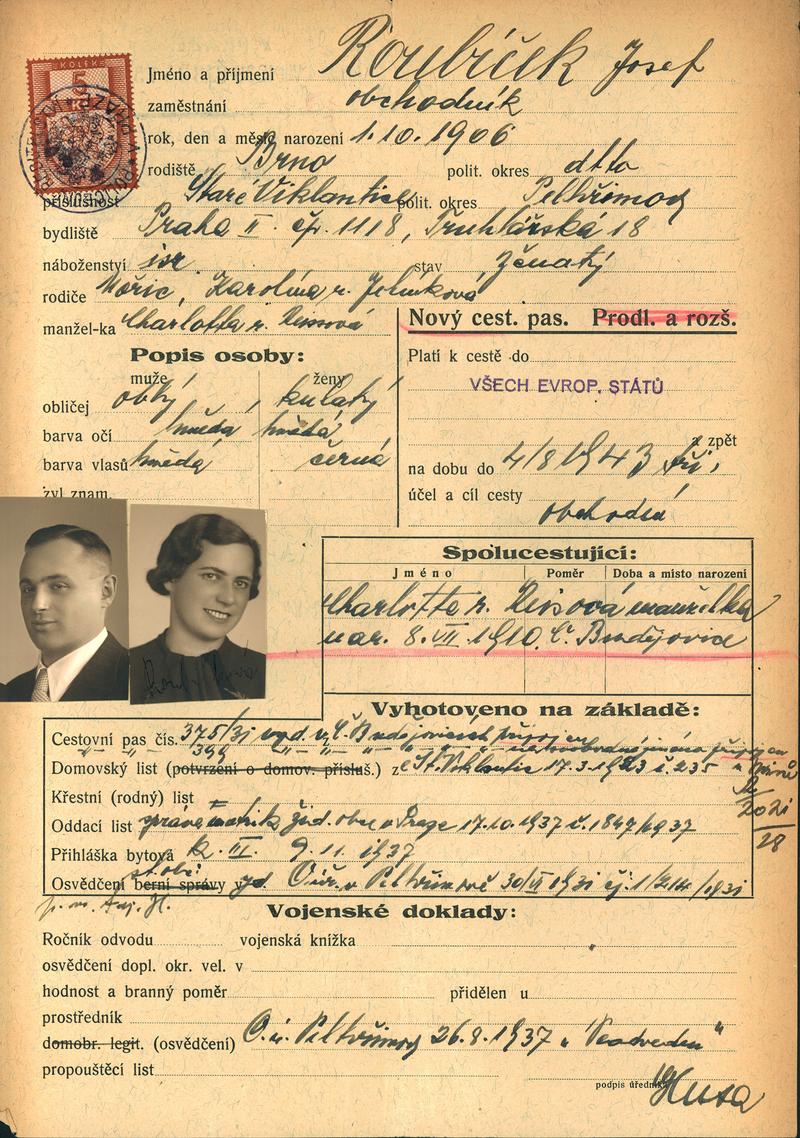 KOLEK
5
Kč
Jméno a příjmení Roubíček Josef
zaměstnání obchodník
rok, den a měsíc narození 1.10.1906
rodiště Brno polit. okres dtto
příslušnost Staré Viklantice polit. okres Pelhřimov
bydliště Praha II. čp. 1118, Truhlářská 18
náboženství isr. stav ženatý
rodiče Mořic, Karolína r. Jelínková
manžel-ka Charlotta r. Neissová
Nový cest. pas. Prodl. a rozš.
Popis osoby:
Platí k cestě do
muže ženy
VŠECH EVROP. STÁTŮ
obličej oblý, kulatý
barva očí hnědá hnědá
barva vlasů hnědá černá
a zpět
na dobu do 4/8 1943
zvl. znam.
účel a cíl cesty
obchodní
Spolucestující:
Jméno Poměr Doba a místo narození
Charlotta r. Neissová manželka
nar. 8. VII. 1910, Č. Budějovice
Vyhotoveno na základě:
Cestovní pas čís. 375/31 vyd. v Č. Budějovicích připojen
399
připojen
Domovský list (potvrzení o domov. přísluš.) z St. Viklantic 17.3.1923 č. 235
Křestní (rodný) list
2021
Oddací list správa matrik žid. obce v Praze 17.10.1937 č. 1847/1937
28
Přihláška bytová k. III. 9. 11. 1937
st. obč.
Osvědčení berní správy v Pelhřimově 30/VI 1931
Vojenské doklady:
Ročník odvodu vojenská knížka
osvědčení dopl. okr. vel. v
hodnost a branný poměr přidělen u
prostředník
domobr. legit. (osvědčení) O. ú. Pelhřimov 26.8.1937 „Neodveden"
propouštěcí list
podpis úředníka
Husa